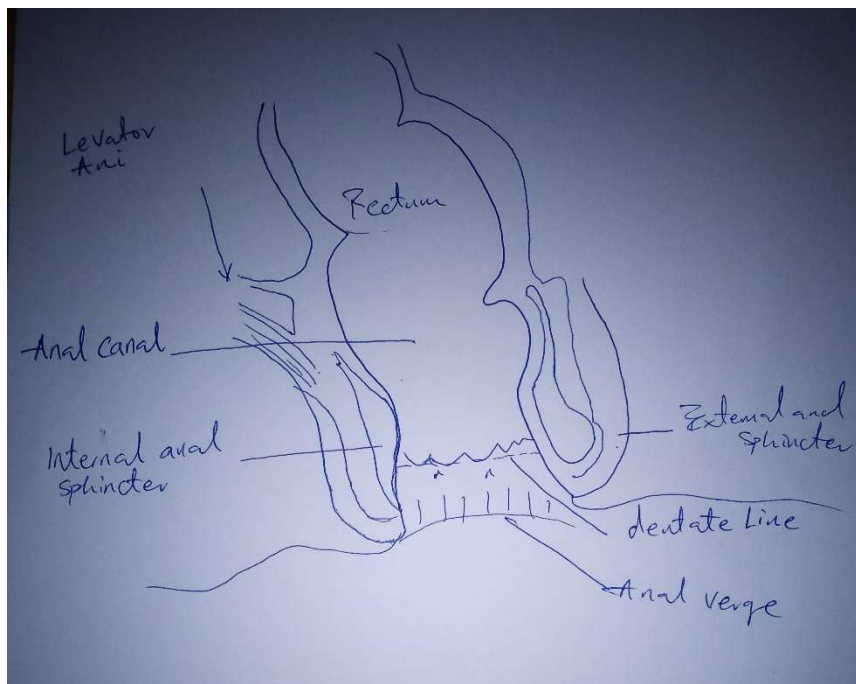 Levator
Ani
Rectum
Anal canal
Internal anal
sphincter
External and
sphincter
dentate Line
Anal verge